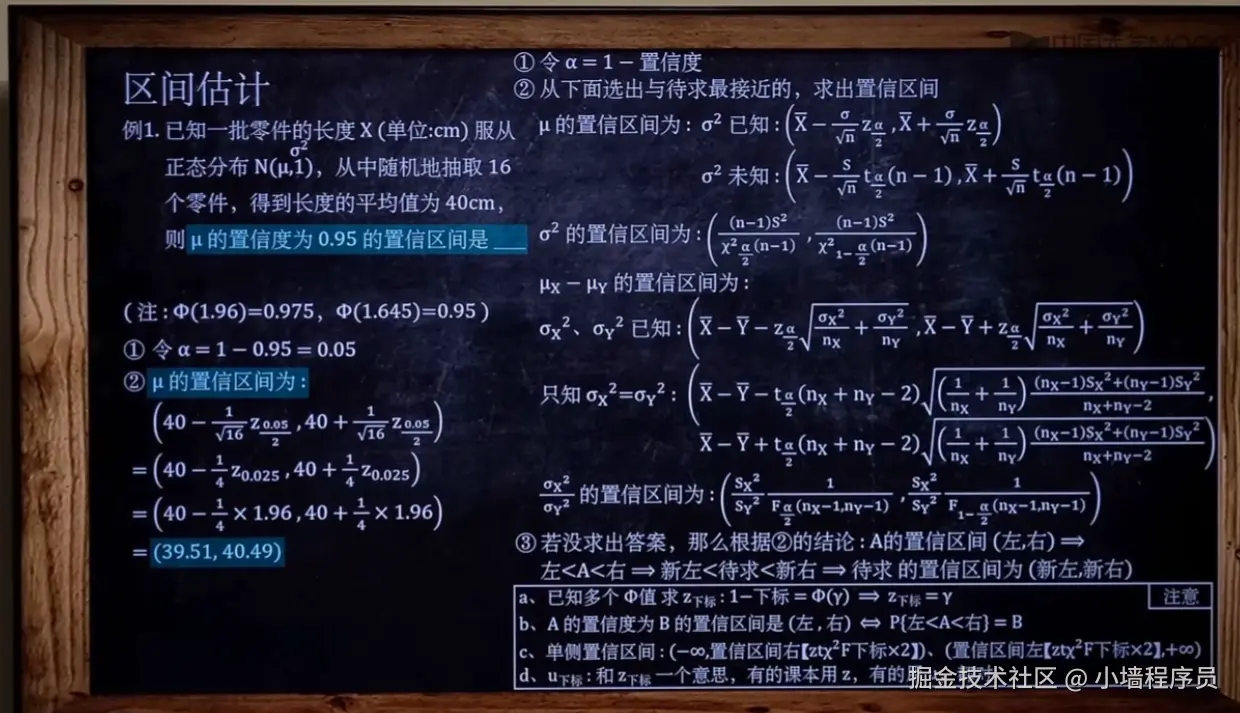 区间估计
例1. 已知一批零件的长度 X (单位:cm) 服从
σ²
正态分布 N(μ,1)，从中随机地抽取 16
个零件，得到长度的平均值为 40cm，
则 μ 的置信度为 0.95 的置信区间是 ___
(注:Φ(1.96)=0.975，Φ(1.645)=0.95)
① 令 α = 1 − 0.95 = 0.05
② μ 的置信区间为:
(40 − 1/√16 z_{0.05/2} , 40 + 1/√16 z_{0.05/2})
= (40 − 1/4 z_{0.025} , 40 + 1/4 z_{0.025})
= (40 − 1/4 × 1.96 , 40 + 1/4 × 1.96)
= (39.51, 40.49)
① 令 α = 1 − 置信度
② 从下面选出与待求最接近的，求出置信区间
μ 的置信区间为: σ² 已知: (X̄ − σ/√n z_{α/2} , X̄ + σ/√n z_{α/2})
σ² 未知: (X̄ − S/√n t_{α/2}(n − 1) , X̄ + S/√n t_{α/2}(n − 1))
σ² 的置信区间为: ((n−1)S²/χ²_{α/2}(n−1) , (n−1)S²/χ²_{1−α/2}(n−1))
μ_X − μ_Y 的置信区间为:
σ_X²、σ_Y² 已知: (X̄ − Ȳ − z_{α/2}√(σ_X²/n_X + σ_Y²/n_Y) , X̄ − Ȳ + z_{α/2}√(σ_X²/n_X + σ_Y²/n_Y))
只知 σ_X²=σ_Y²: (X̄ − Ȳ − t_{α/2}(n_X + n_Y − 2)√((1/n_X + 1/n_Y) (n_X−1)S_X²+(n_Y−1)S_Y²/n_X+n_Y−2) ,
X̄ − Ȳ + t_{α/2}(n_X + n_Y − 2)√((1/n_X + 1/n_Y) (n_X−1)S_X²+(n_Y−1)S_Y²/n_X+n_Y−2))
σ_X²/σ_Y² 的置信区间为: (S_X²/S_Y² 1/F_{α/2}(n_X−1,n_Y−1) , S_X²/S_Y² 1/F_{1−α/2}(n_X−1,n_Y−1))
③ 若没求出答案，那么根据②的结论: A的置信区间 (左,右) ⟹
左<A<右 ⟹ 新左<待求<新右 ⟹ 待求 的置信区间为 (新左,新右)
注意
a、已知多个 Φ值 求 z下标: 1−下标 = Φ(γ) ⟹ z下标 = γ
b、A 的置信度为 B 的置信区间是 (左 , 右) ⟺ P{左<A<右} = B
c、单侧置信区间: (−∞,置信区间右【ztχ²F下标×2】)、(置信区间左【ztχ²F下标×2】,+∞)
d、u下标: 和 z下标 一个意思，有的课本用 z，有的
掘金技术社区 @ 小墙程序员